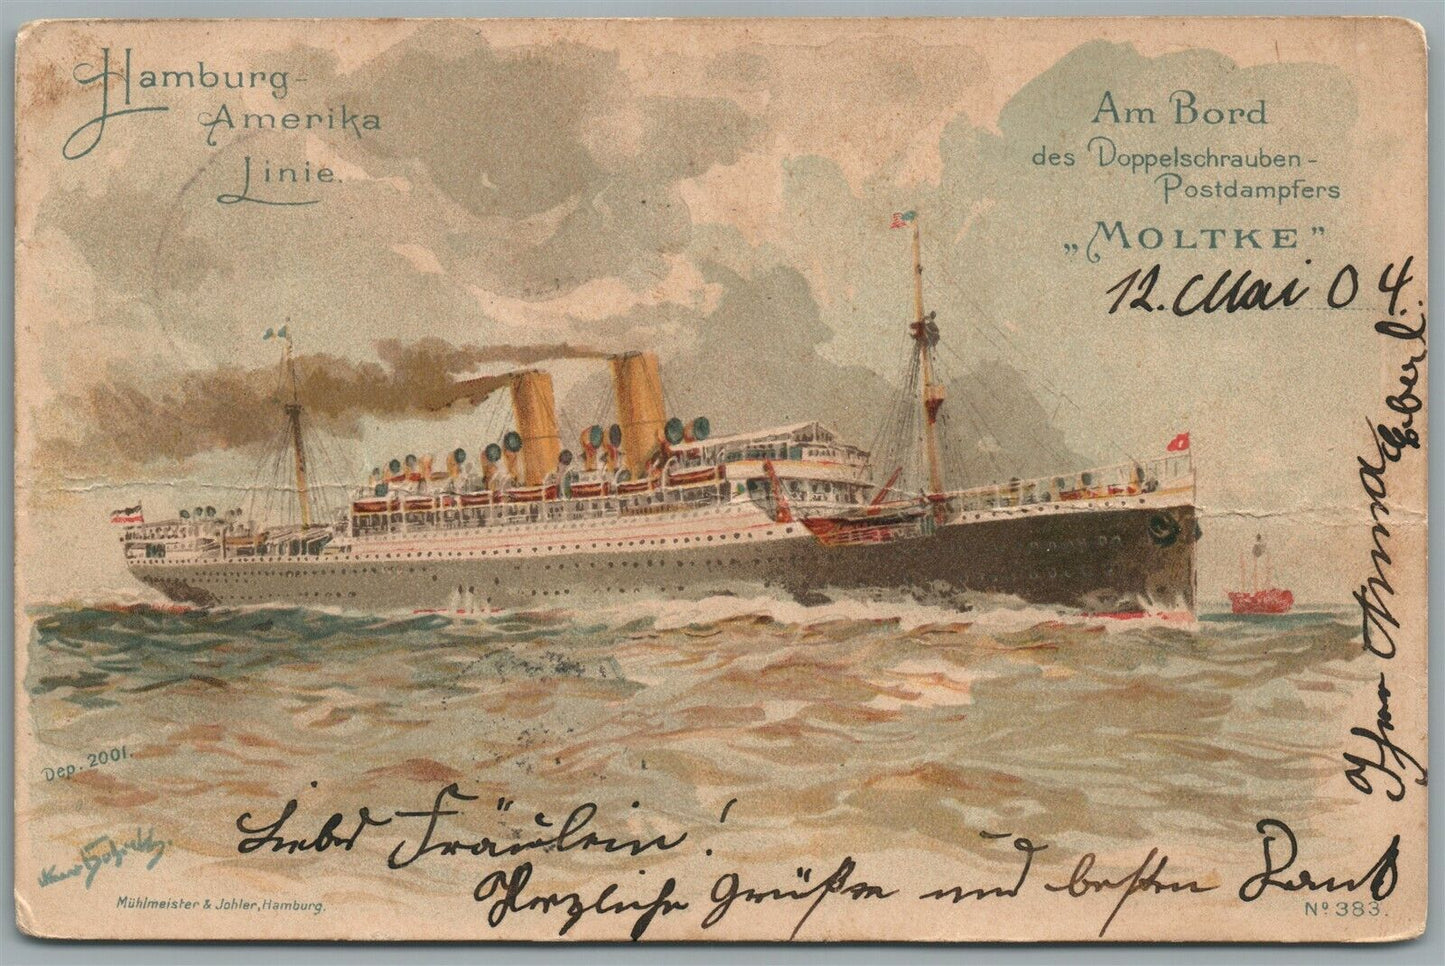 Hamburg-
Amerika
Linie.
Am Bord
des Doppelschrauben-
Postdampfers
„MOLTKE”
12. Mai 04
Dep. 2001.
Liebes Fräulein!
Herzliche Grüße und besten Dank
Ihr Armand Eberl.
Mühlmeister & Johler, Hamburg.
Nº 383.